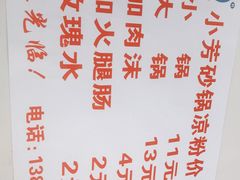 小芳砂锅凉粉价
小 锅 11元
大 锅 13元
加肉沫 4元
加火腿肠 2元
玫瑰水 2
光临！ 电话：138